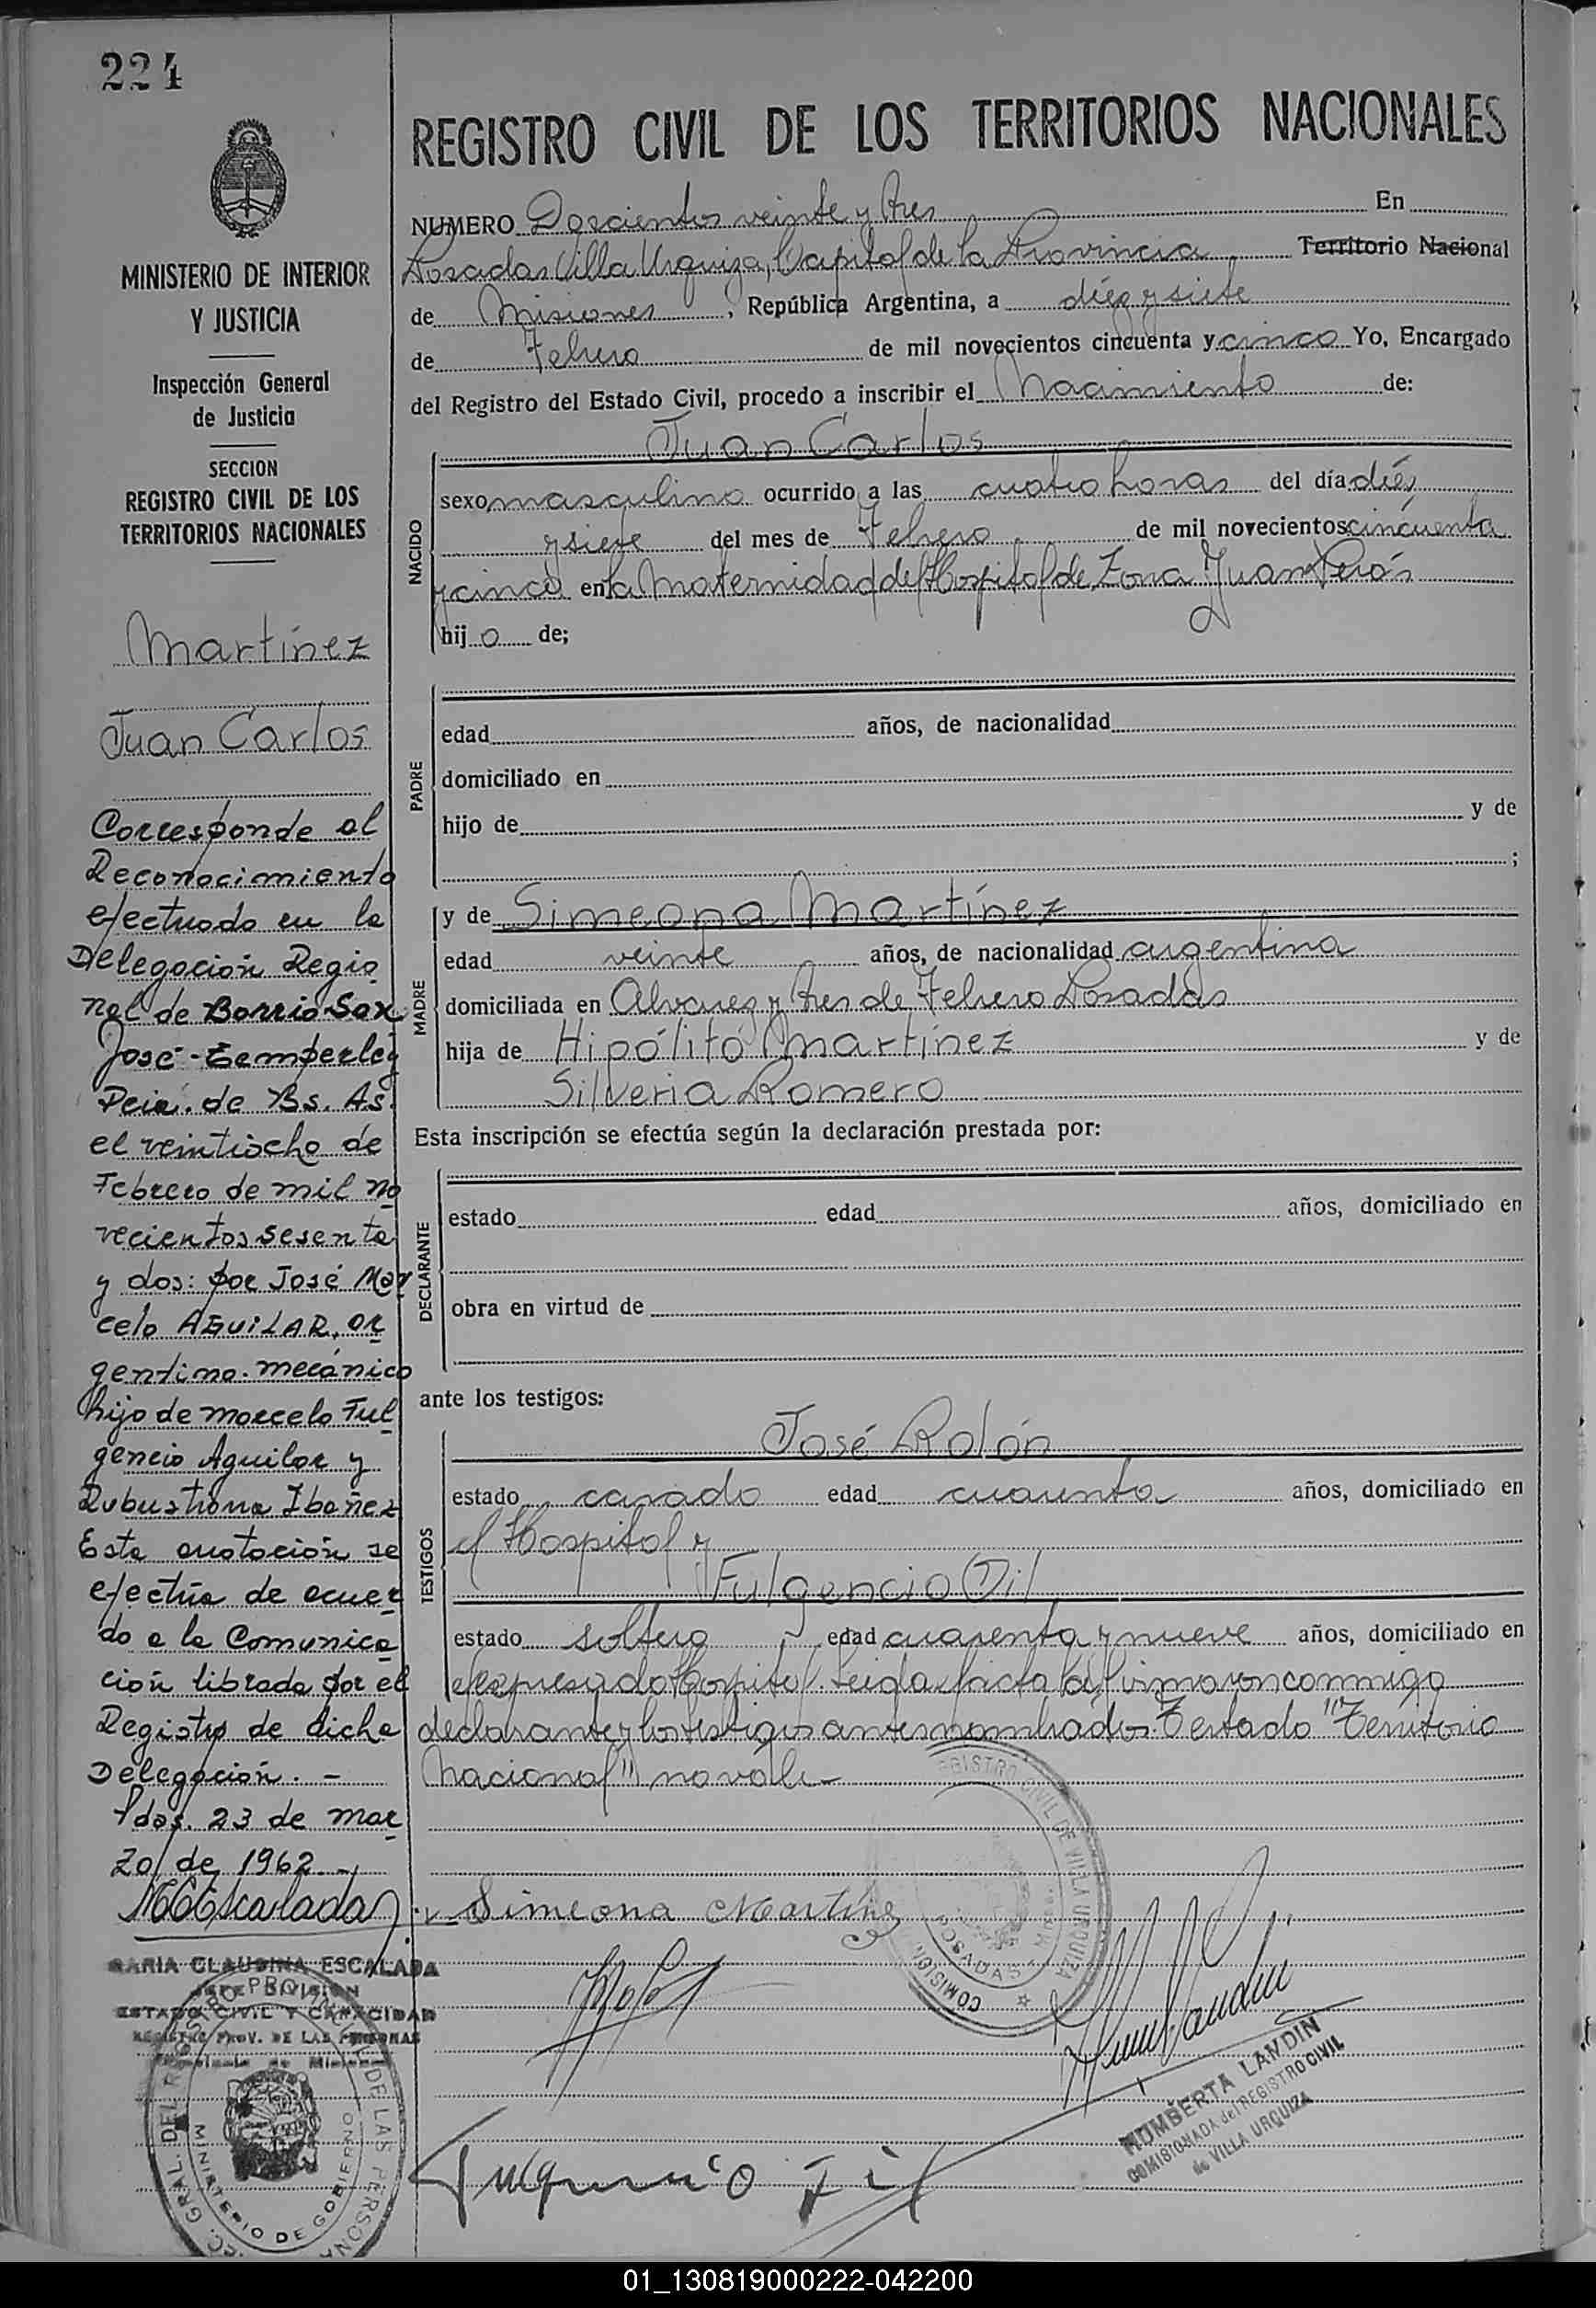 224
MINISTERIO DE INTERIOR
Y JUSTICIA
Inspección General
de Justicia
SECCION
REGISTRO CIVIL DE LOS
TERRITORIOS NACIONALES
Martínez
Juan Carlos
Corresponde al
Reconocimiento
efectuado en la
Delegación Regio
nal de Barrio San
José - Temperley
Pcia. de Bs. As.
el veintiocho de
Febrero de mil no
vecientos sesenta
y dos: por José Mar
celo AGUILAR, ar
gentino. mecánico
hijo de Marcelo Ful
gencio Aguilar y
Rubustiana Ibañez
Esta anotación se
efectúa de acuer
do a la Comunica
ción librada por el
Registro de dicha
Delegación. -
Pdas. 23 de mar
zo de 1962.-
MCEscalada
MARIA CLAUDINA ESCALADA
JEFE DIVISION
ESTADO CIVIL Y CAPACIDAD
REGISTRO PROV. DE LAS PERSONAS
MINISTERIO DE GOBIERNO
REGISTRO CIVIL DE LOS TERRITORIOS NACIONALES
NUMERO Doscientos veinte y tres En
Posadas Villa Urquiza, Capital de la Provincia Territorio Nacional
de Misiones, República Argentina, a diéz y siete
de Febrero de mil novecientos cincuenta y cinco Yo, Encargado
del Registro del Estado Civil, procedo a inscribir el Nacimiento de:
Juan Carlos
NACIDO
sexo masculino ocurrido a las cuatro horas del día diéz
y siete del mes de Febrero de mil novecientos cincuenta
y cinco en la Maternidad del Hospital de Zona Juan Perón
hijo de;
PADRE
edad años, de nacionalidad
domiciliado en
hijo de y de
;
MADRE
y de Simeona Martínez
edad veinte años, de nacionalidad argentina
domiciliada en Alvarez y Tres de Febrero Posadas
hija de Hipólito Martínez y de
Silveria Romero
Esta inscripción se efectúa según la declaración prestada por:
DECLARANTE
estado edad años, domiciliado en
obra en virtud de
ante los testigos:
TESTIGOS
José Rolón
estado casado edad cuarenta años, domiciliado en
el Hospital y
Fulgencio Gil
estado soltero edad cuarenta y nueve años, domiciliado en
el expresado Hospital. Leida el acta la firmaron conmigo
declarante y los testigos antes nombrados. Testado "Territorio
Nacional" no vale-
Simeona Martínez
REGISTRO CIVIL DE VILLA URQUIZA
POSADAS
HUMBERTA LANDIN
COMISIONADA del REGISTRO CIVIL
de VILLA URQUIZA
Fulgencio Gil
01_130819000222-042200